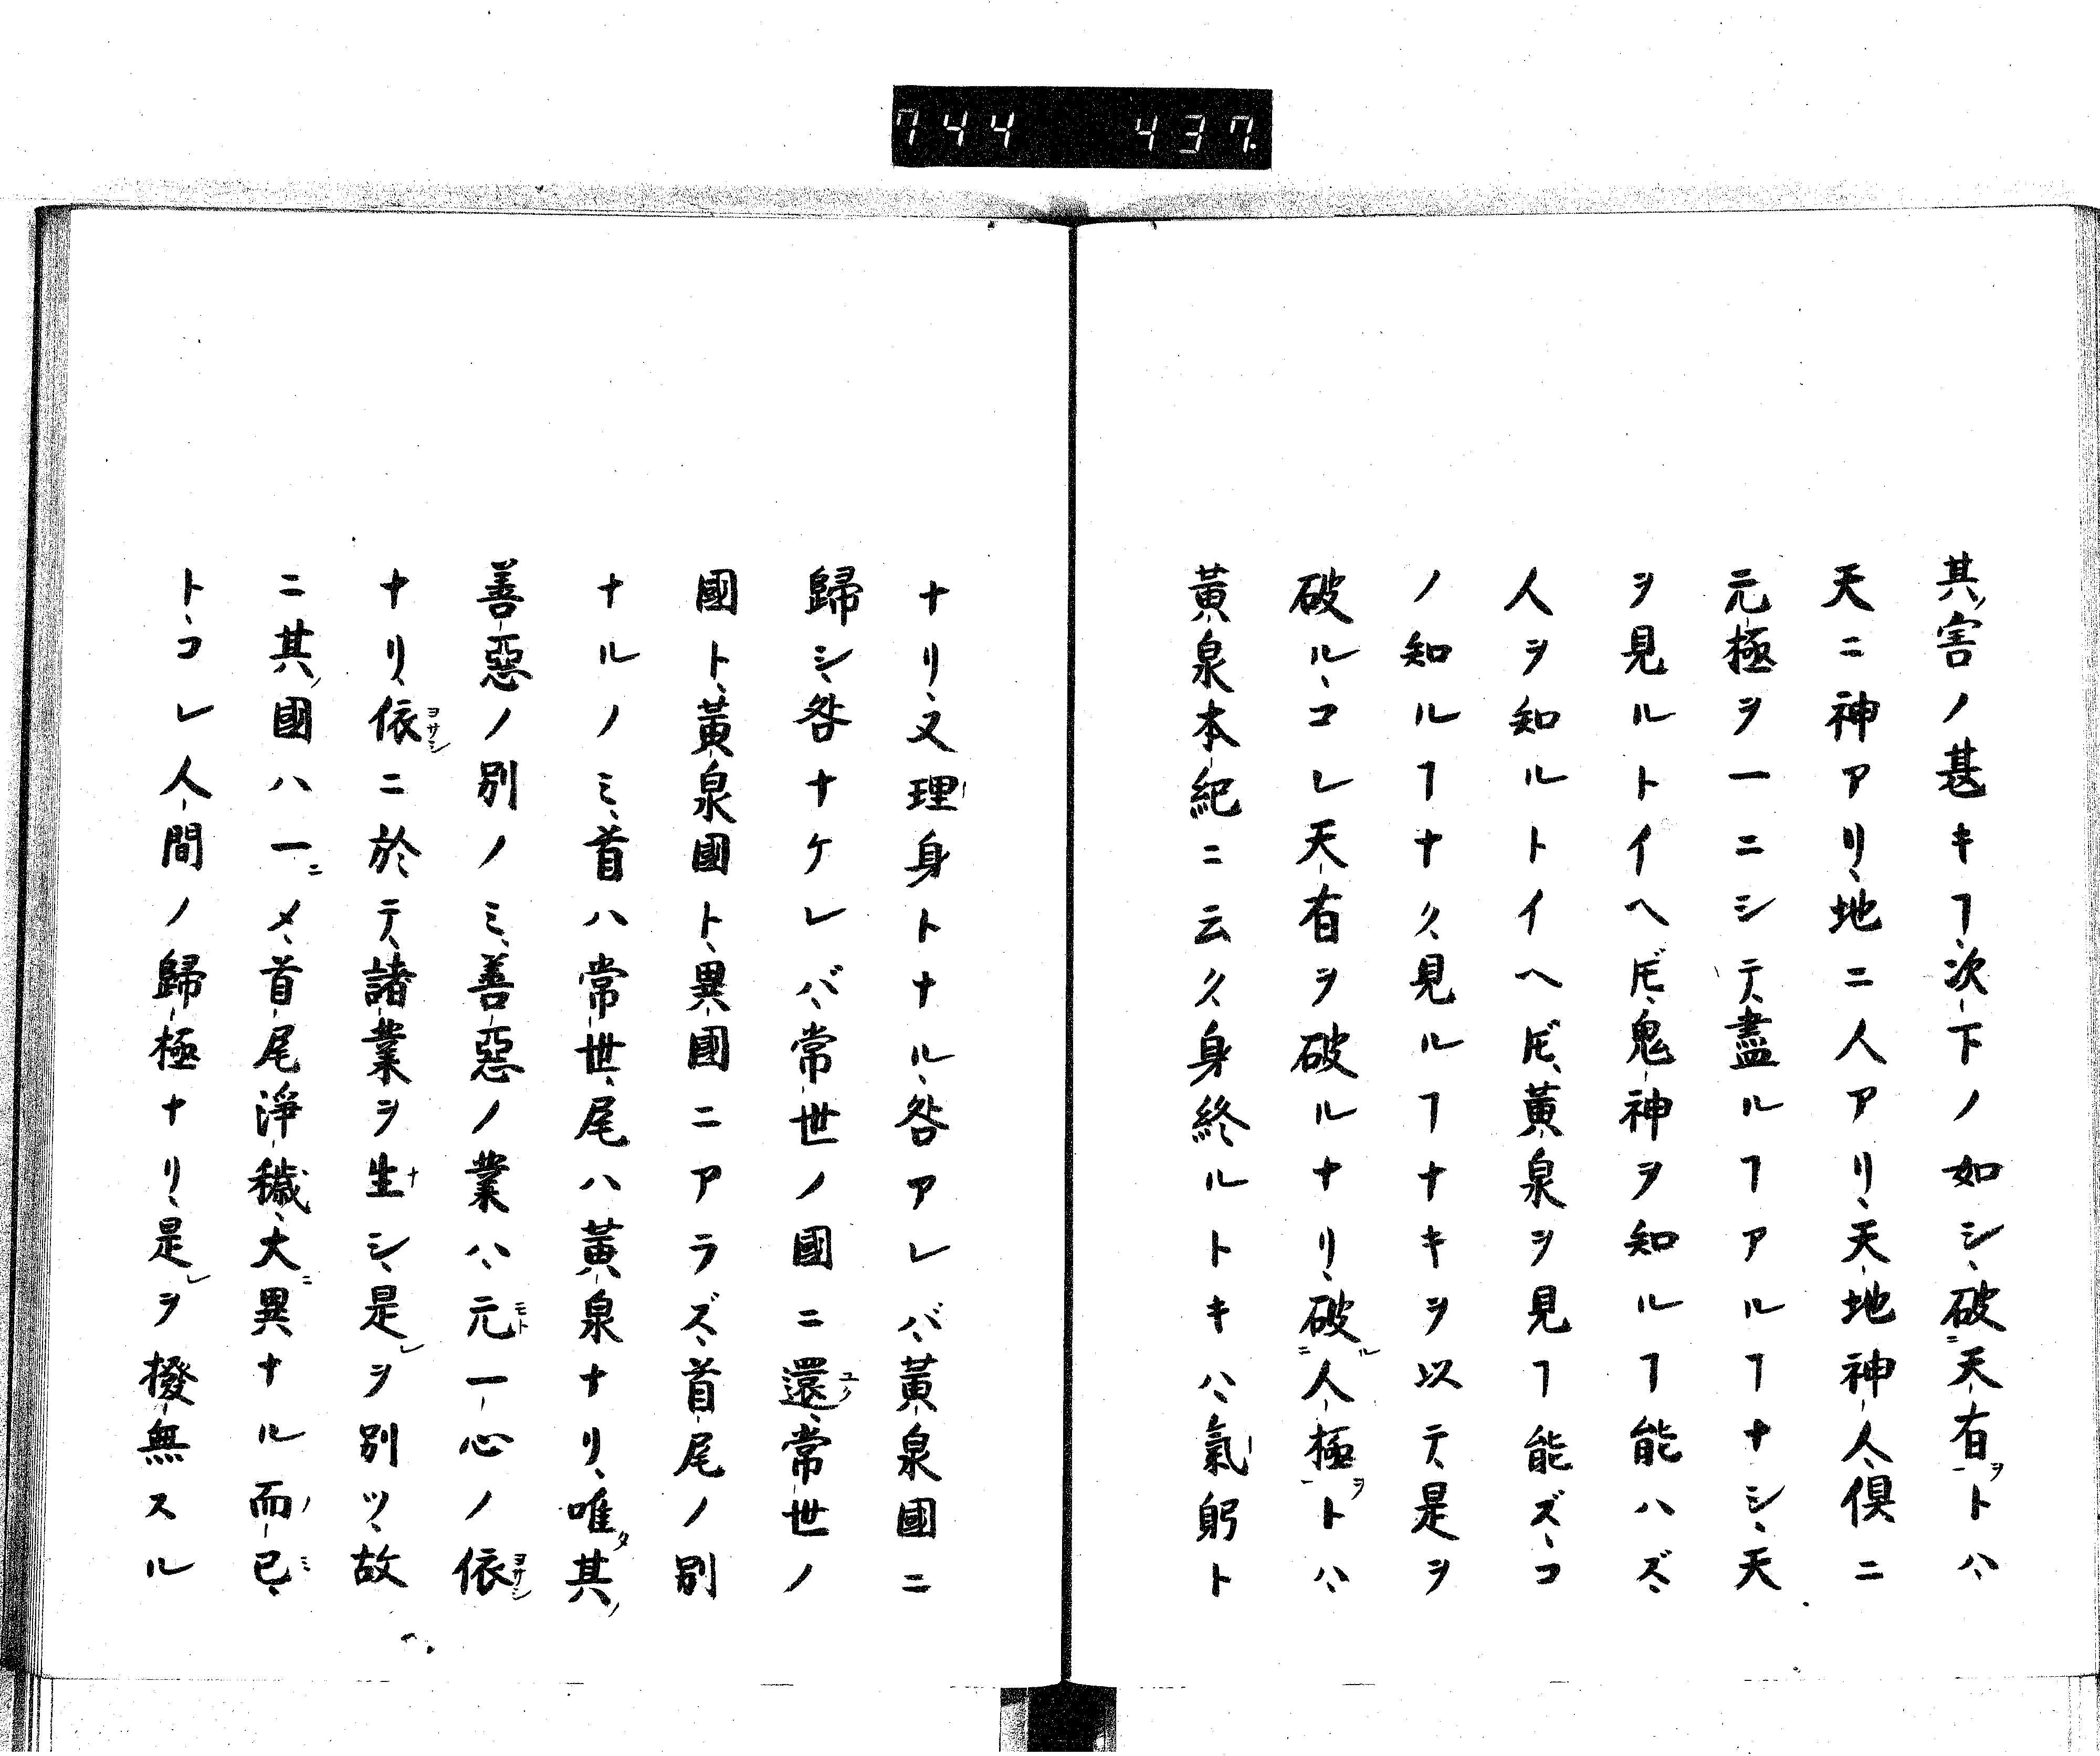 744 437.
其ノ害ノ甚キヿ、次下ノ如シ、破ニ天有ヲ一トハ
天ニ神アリ、地ニ人アリ、天地神人、倶ニ
元極ヲ一ニシテ、盡ルヿアルヿナシ、天
ヲ見ルトイヘ𪜈、鬼神ヲ知ルヿ能ハズ、
人ヲ知ルトイヘ𪜈、黄泉ヲ見ヿ能ズ、コ
ノ知ルヿナク、見ルヿナキヲ以テ、是ヲ
破ル、コレ天有ヲ破ルナリ、破ルニ人極ヲ一トハ、
黄泉本紀ニ云ク、身終ルトキハ、氣躬ト
ナリ、又理身トナル、咎アレバ、黄泉國ニ
歸シ、咎ナケレバ、常世ノ國ニ還ユク、常世ノ
國ト、黄泉國ト、異國ニアラズ、首尾ノ別
ナルノミ、首ハ常世、尾ハ黄泉ナリ、唯タ其ノ
善惡ノ別ノミ、善惡ノ業ハ、元モト一心ノ依ヨサシ
ナリ、依ヨサシニ於テ、諸業ヲ生ナシ、是レヲ別ツ、故
ニ其ノ國ハ一ニメ、首尾淨穢、大ニ異ナル而已ノミ、
ト、コレ人間ノ歸極ナリ、是レヲ撥無スル